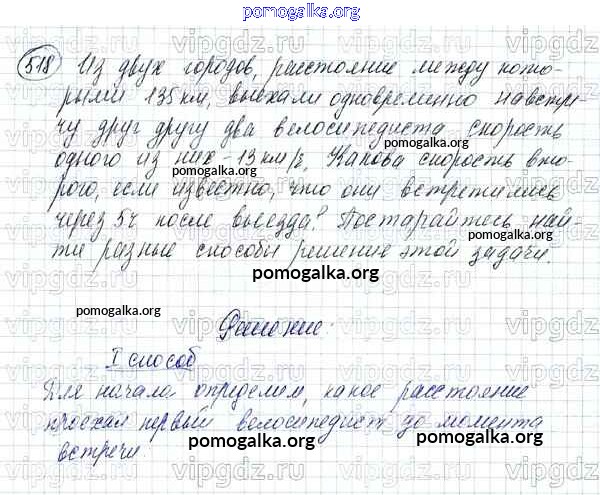 pomogalka.org
518 Из двух городов, расстояние между кото-
рыми 135 км, выехали одновременно навстре-
чу друг другу два велосипедиста скорость
одного из них - 13 км/ч. Какова скорость вто-
рого, если известно, что они встретились
через 5ч после выезда? Постарайтесь най-
ти разные способы решение этой задачи.
Решение:
I способ
Для начала определим, какое расстояние
проехал первый велосипедист до момента
встречи.
pomogalka.org
pomogalka.org
pomogalka.org
pomogalka.org
pomogalka.org
pomogalka.org
vipgdz.ru